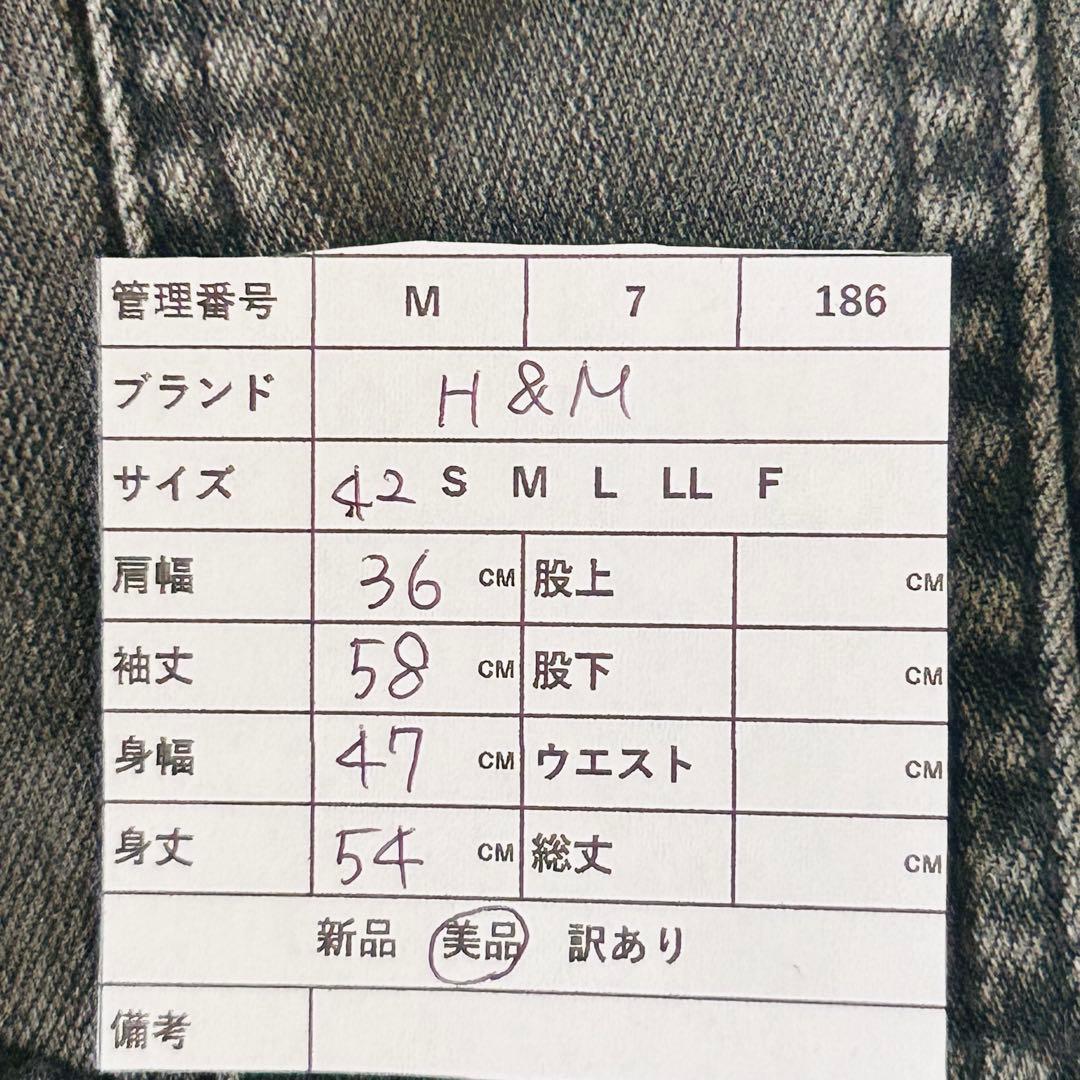 管理番号 M 7 186
ブランド H&M
サイズ 42 S M L LL F
肩幅 36 CM 股上 CM
袖丈 58 CM 股下 CM
身幅 47 CM ウエスト CM
身丈 54 CM 総丈 CM
新品 美品 訳あり
備考